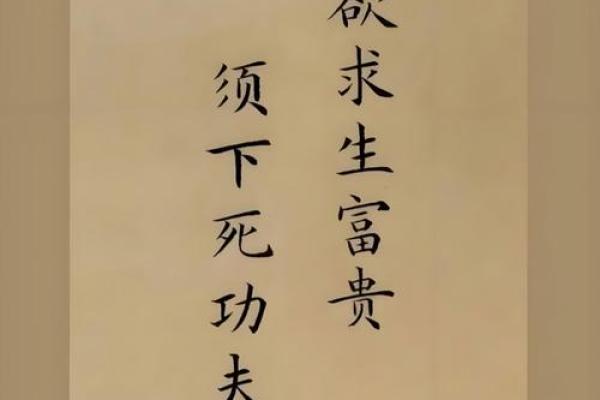 欲求生富贵
须下死功夫